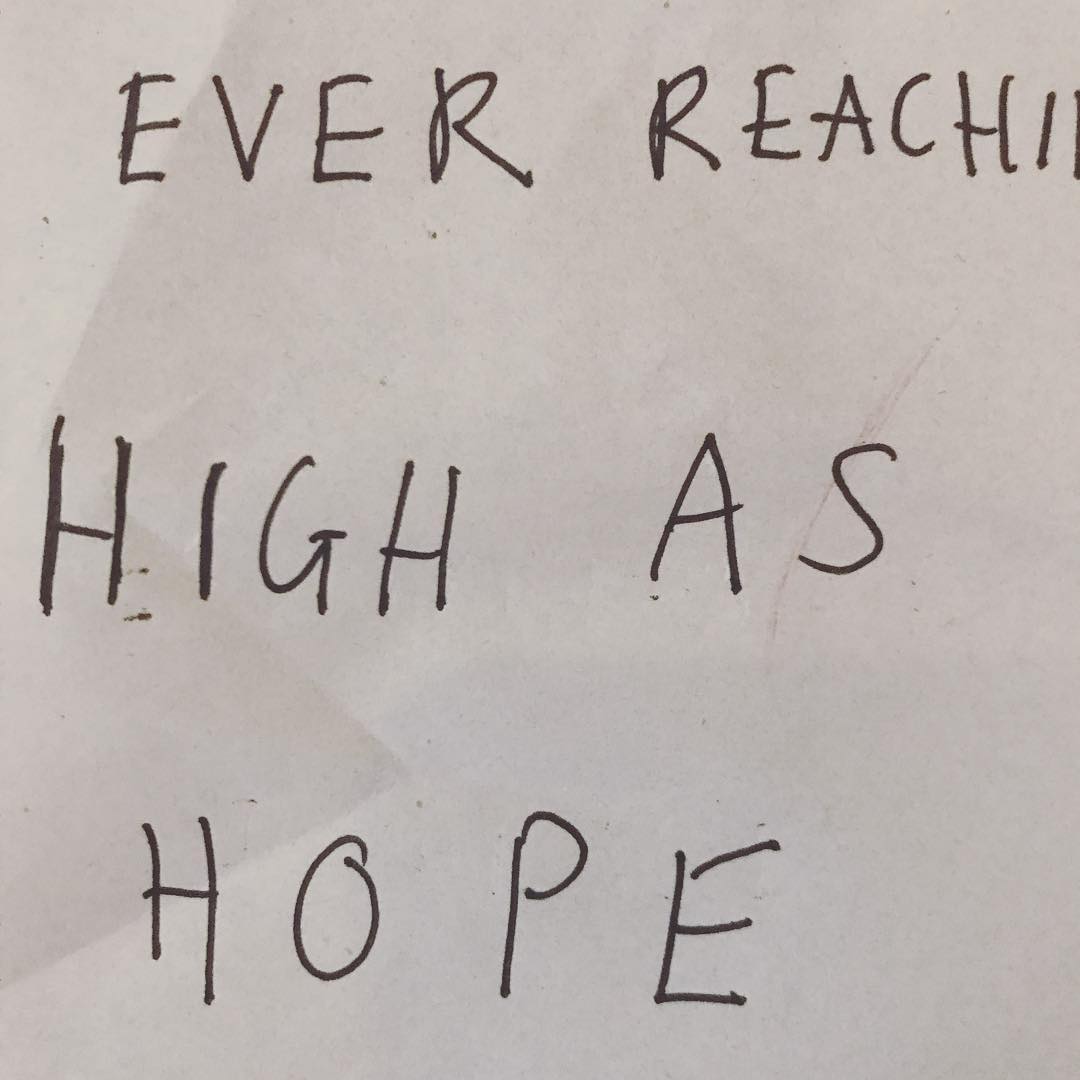 EVER REACHI
HIGH AS
HOPE